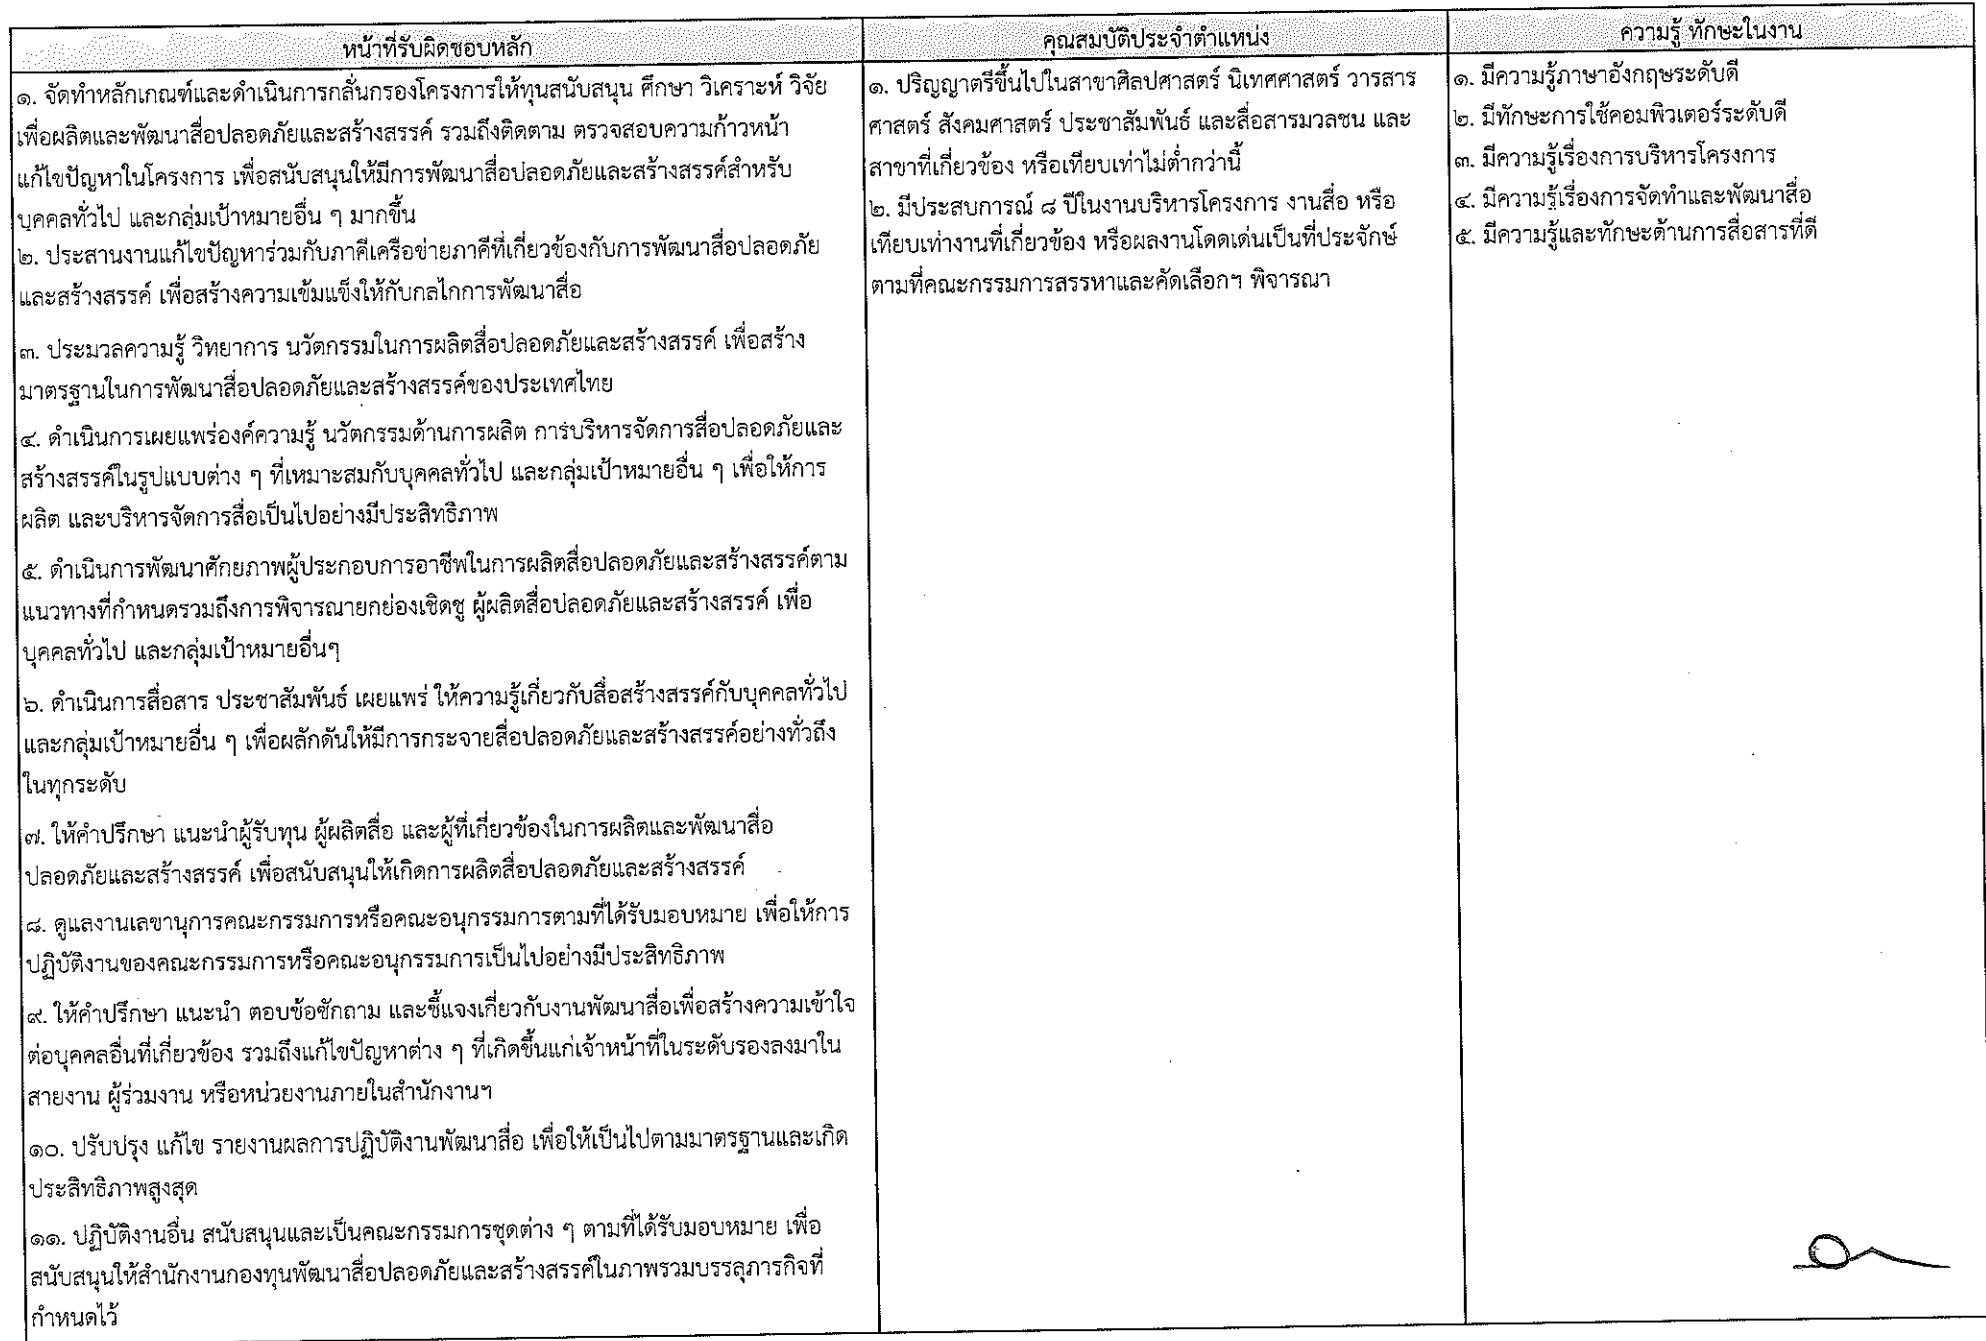 หน้าที่รับผิดชอบหลัก
๑. จัดทำหลักเกณฑ์และดำเนินการกลั่นกรองโครงการให้ทุนสนับสนุน ศึกษา วิเคราะห์ วิจัย
เพื่อผลิตและพัฒนาสื่อปลอดภัยและสร้างสรรค์ รวมถึงติดตาม ตรวจสอบความก้าวหน้า
แก้ไขปัญหาในโครงการ เพื่อสนับสนุนให้มีการพัฒนาสื่อปลอดภัยและสร้างสรรค์สำหรับ
บุคคลทั่วไป และกลุ่มเป้าหมายอื่น ๆ มากขึ้น
๒. ประสานงานแก้ไขปัญหาร่วมกับภาคีเครือข่ายภาคีที่เกี่ยวข้องกับการพัฒนาสื่อปลอดภัย
และสร้างสรรค์ เพื่อสร้างความเข้มแข็งให้กับกลไกการพัฒนาสื่อ
๓. ประมวลความรู้ วิทยาการ นวัตกรรมในการผลิตสื่อปลอดภัยและสร้างสรรค์ เพื่อสร้าง
มาตรฐานในการพัฒนาสื่อปลอดภัยและสร้างสรรค์ของประเทศไทย
๔. ดำเนินการเผยแพร่องค์ความรู้ นวัตกรรมด้านการผลิต การบริหารจัดการสื่อปลอดภัยและ
สร้างสรรค์ในรูปแบบต่าง ๆ ที่เหมาะสมกับบุคคลทั่วไป และกลุ่มเป้าหมายอื่น ๆ เพื่อให้การ
ผลิต และบริหารจัดการสื่อเป็นไปอย่างมีประสิทธิภาพ
๕. ดำเนินการพัฒนาศักยภาพผู้ประกอบการอาชีพในการผลิตสื่อปลอดภัยและสร้างสรรค์ตาม
แนวทางที่กำหนดรวมถึงการพิจารณายกย่องเชิดชู ผู้ผลิตสื่อปลอดภัยและสร้างสรรค์ เพื่อ
บุคคลทั่วไป และกลุ่มเป้าหมายอื่นๆ
๖. ดำเนินการสื่อสาร ประชาสัมพันธ์ เผยแพร่ ให้ความรู้เกี่ยวกับสื่อสร้างสรรค์กับบุคคลทั่วไป
และกลุ่มเป้าหมายอื่น ๆ เพื่อผลักดันให้มีการกระจายสื่อปลอดภัยและสร้างสรรค์อย่างทั่วถึง
ในทุกระดับ
๗. ให้คำปรึกษา แนะนำผู้รับทุน ผู้ผลิตสื่อ และผู้ที่เกี่ยวข้องในการผลิตและพัฒนาสื่อ
ปลอดภัยและสร้างสรรค์ เพื่อสนับสนุนให้เกิดการผลิตสื่อปลอดภัยและสร้างสรรค์
๘. ดูแลงานเลขานุการคณะกรรมการหรือคณะอนุกรรมการตามที่ได้รับมอบหมาย เพื่อให้การ
ปฏิบัติงานของคณะกรรมการหรือคณะอนุกรรมการเป็นไปอย่างมีประสิทธิภาพ
๙. ให้คำปรึกษา แนะนำ ตอบข้อซักถาม และชี้แจงเกี่ยวกับงานพัฒนาสื่อเพื่อสร้างความเข้าใจ
ต่อบุคคลอื่นที่เกี่ยวข้อง รวมถึงแก้ไขปัญหาต่าง ๆ ที่เกิดขึ้นแก่เจ้าหน้าที่ในระดับรองลงมาใน
สายงาน ผู้ร่วมงาน หรือหน่วยงานภายในสำนักงานฯ
๑๐. ปรับปรุง แก้ไข รายงานผลการปฏิบัติงานพัฒนาสื่อ เพื่อให้เป็นไปตามมาตรฐานและเกิด
ประสิทธิภาพสูงสุด
๑๑. ปฏิบัติงานอื่น สนับสนุนและเป็นคณะกรรมการชุดต่าง ๆ ตามที่ได้รับมอบหมาย เพื่อ
สนับสนุนให้สำนักงานกองทุนพัฒนาสื่อปลอดภัยและสร้างสรรค์ในภาพรวมบรรลุภารกิจที่
กำหนดไว้
คุณสมบัติประจำตำแหน่ง
๑. ปริญญาตรีขึ้นไปในสาขาศิลปศาสตร์ นิเทศศาสตร์ วารสาร
ศาสตร์ สังคมศาสตร์ ประชาสัมพันธ์ และสื่อสารมวลชน และ
สาขาที่เกี่ยวข้อง หรือเทียบเท่าไม่ต่ำกว่านี้
๒. มีประสบการณ์ ๘ ปีในงานบริหารโครงการ งานสื่อ หรือ
เทียบเท่างานที่เกี่ยวข้อง หรือผลงานโดดเด่นเป็นที่ประจักษ์
ตามที่คณะกรรมการสรรหาและคัดเลือกฯ พิจารณา
ความรู้ ทักษะในงาน
๑. มีความรู้ภาษาอังกฤษระดับดี
๒. มีทักษะการใช้คอมพิวเตอร์ระดับดี
๓. มีความรู้เรื่องการบริหารโครงการ
๔. มีความรู้เรื่องการจัดทำและพัฒนาสื่อ
๕. มีความรู้และทักษะด้านการสื่อสารที่ดี